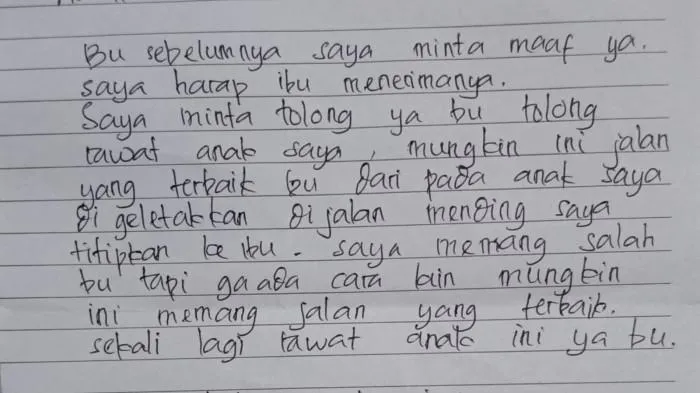 Bu sebelumnya saya minta maaf ya.
saya harap ibu menerimanya.
Saya minta tolong ya bu tolong
rawat anak saya, mungkin ini jalan
yang terbaik bu dari pada anak saya
di geletakkan di jalan mending saya
titipkan ke ibu. saya memang salah
bu tapi ga ada cara lain mungkin
ini memang jalan yang terbaik.
sekali lagi rawat anak ini ya bu.